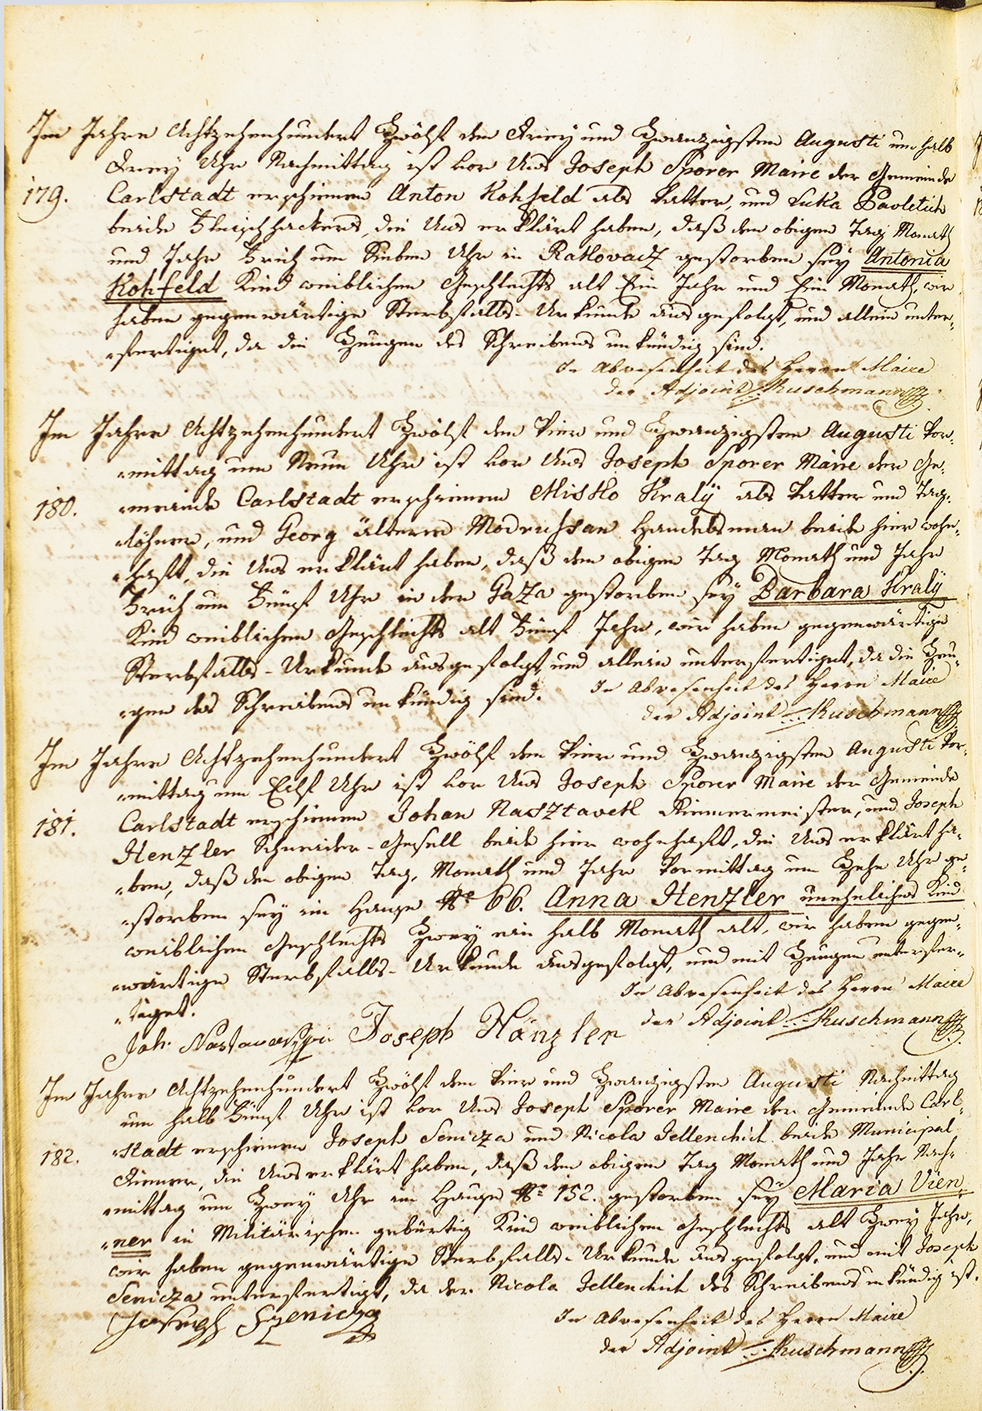 Im Jahre Achtzehenhundert Zwölf den Drey und Zwanzigsten Augusti um halb
Drey Uhr Nachmittag ist vor Uns Joseph Sporer Maire der Gemeinde
179. Carlstadt erschienen Anton Kohfeld als Vatter, und Luka Pavletich
beide Fleischhackers, die Uns erklärt haben, daß den obigen Tag Monath
und Jahr Früh um Sieben Uhr in Rakovacz gestorben sey Antonia
Kohfeld Kind weiblichen Geschlechts alt Ein Jahr und Ein Monath, wir
haben gegenwärtige Sterbfalls-Urkunde ausgefolgt, und allein unter-
-fertiget, da die Zeugen des Schreibens unkündig sind.
In Abwesenheit des Herrn Maire
der Adjoint Kuschmann
Im Jahre Achtzehenhundert Zwölf den Vier und Zwanzigsten Augusti Vor-
-mittag um Neun Uhr ist vor Uns Joseph Sporer Maire der Ge-
180. -meinde Carlstadt erschienen Mishko Kralÿ als Vatter und Tag-
-löhner, und Georg älterer Modrushan Handelsman beide hier wohn-
-haft, die Uns erklärt haben, daß den obigen Tag Monath und Jahr
Früh um Fünf Uhr in der Gaza gestorben seÿ Barbara Kralÿ
Kind weiblichen Geschlechts alt Fünf Jahr, wir haben gegenwärtige
Sterbfalls-Urkunde ausgefolgt, und allein unterfertiget, da die Zeu-
-gen des Schreibens unkündig sind. In Abwesenheit des Herrn Maire
der Adjoint Kuschmann
Im Jahre Achtzehenhundert Zwölf den Vier und Zwanzigsten Augusti Vor-
-mittag um Eilf Uhr ist vor Uns Joseph Sporer Maire der Gemeinde
181. Carlstadt erschienen Johan Nasztavek Riemermeister, und Joseph
Henzler Schneider-Gesell beide hier wohnhaft, die Uns erklärt ha-
-ben, daß den obigen Tag, Monath und Jahr Vormittag um Zehn Uhr ge-
-storben sey im Hause No 66. Anna Henzler unehliches Kind
weiblichen Geschlechts Zwey ein halb Monath alt, wir haben gegen-
-wärtige Sterbfalls-Urkunde ausgefolgt, und mit Zeugen unterfer-
-tiget. In Abwesenheit des Herrn Maire
Joh. Joseph Hänzler der Adjoint Kuschmann
Im Jahre Achtzehenhundert Zwölf den Vier und Zwanzigsten Augusti Nachmittag
um halb Fünf Uhr ist vor Uns Joseph Sporer Maire der Gemeinde Carl-
182. -stadt erschienen Joseph Senicza und Nicola Jellenchich beide Municipal
Diener, die Uns erklärt haben, daß den obigen Tag Monath und Jahr Nach-
-mittag um Zwey Uhr im Hause No 152. gestorben seÿ Maria Vien-
-ner in Militärischen gebürtig Kind weiblichen Geschlechts alt Zwey Jahr,
wir haben gegenwärtige Sterbfalls-Urkunde ausgefolgt, und mit Joseph
Senicza unterfertigt, da der Nicola Jellenchich des Schreibens unkündig ist.
Joseph Szenicza In Abwesenheit des Herrn Maire
der Adjoint Kuschmann